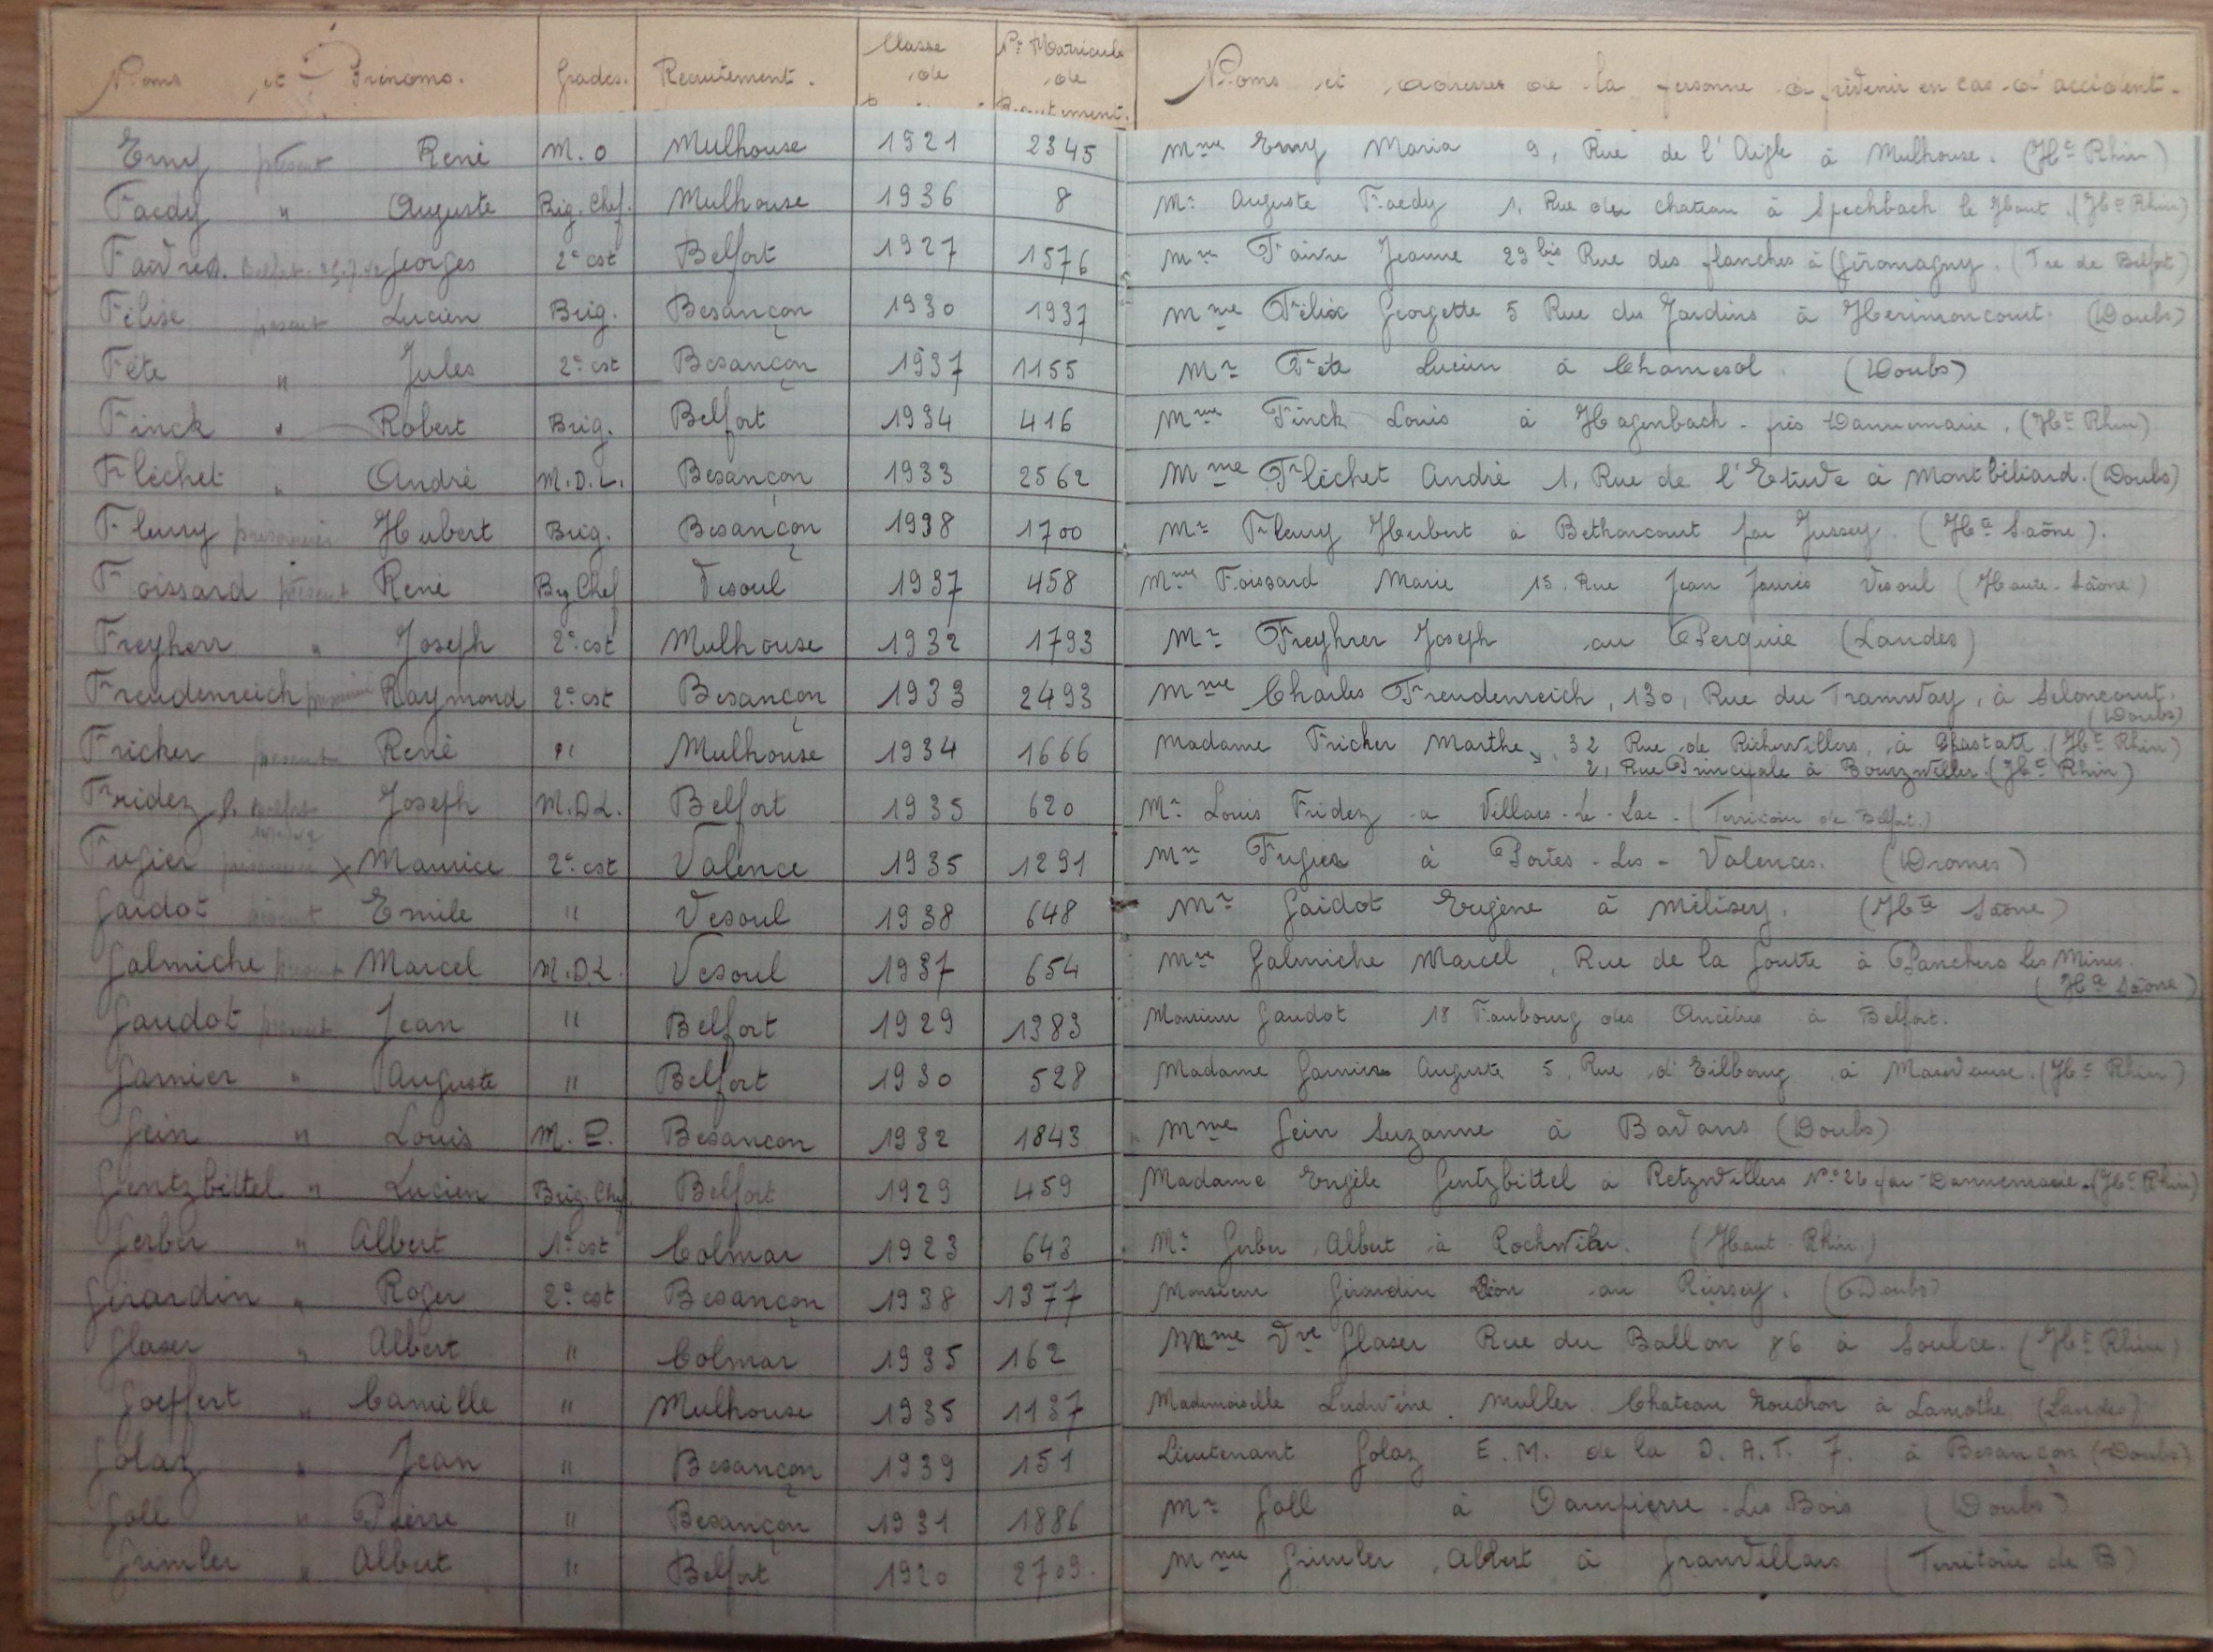 Noms et Prénoms. Grades. Recrutement. Classe de N° Matricule de Recrutement. Noms et adresses de la personne à prévenir en cas d'accident.
Emy présent René M. O Mulhouse 1921 2345 Mme Emy Maria 9, Rue de l'Aigle à Mulhouse. (Ht Rhin)
Faedy " Auguste Brig. Chef. Mulhouse 1936 8 Mr Auguste Faedy 1, Rue du Chateau à Spechbach le Haut. (Ht Rhin)
Faivre Georges 2e cst Belfort 1927 1576 Mme Faivre Jeanne 29 bis Rue des planches à Giromagny. (Tre de Belfort)
Félise présent Lucien Brig. Besançon 1930 1937 Mme Félix Georgette 5 Rue des Jardins à Herimoncourt. (Doubs)
Fête " Jules 2e cst Besançon 1937 1155 Mr Fête Lucien à Chamesol. (Doubs)
Finck " Robert Brig. Belfort 1934 416 Mme Finck Louis à Hagenbach - près Dannemarie. (Ht Rhin)
Fléchet " André M.D.L. Besançon 1933 2562 Mme Fléchet André 1, Rue de l'Etuve à Montbéliard. (Doubs)
Fleury prisonnier Hubert Brig. Besançon 1938 1700 Mr Fleury Hubert à Betharcourt par Jussey. (Hte Saône).
Foissard présent René Brg Chef Vesoul 1937 458 Mme Foissard Marie 15. Rue Jean Jaurès Vesoul (Haute-Saône)
Freyherr " Joseph 2e cst Mulhouse 1932 1793 Mr Freyhrer Joseph au Perquie (Landes)
Freudenreich prisonnier Raymond 2e cst Besançon 1933 2493 Mme Charles Freudenreich, 130, Rue du Tramway, à Seloncourt.
(Doubs)
Fricher présent René " Mulhouse 1934 1666 Madame Fricker Marthe, 32 Rue de Richwillers, à Pfastatt. (Ht Rhin)
2, Rue Principale à Bourzwiller. (Ht Rhin)
Fridez Belfort Joseph M.D.L. Belfort 1935 620 Mr Louis Fridez a Villars-le-Sec - (Territoire de Belfort.)
Fugier prisonnier x Maurice 2e cst Valence 1935 1291 Mme Fugier à Portes-Les-Valences. (Dromes)
Gaidot présent Emile " Vesoul 1938 648 Mr Gaidot Eugène à Mélisey. (Hte Saône)
Galmiche présent Marcel M.D.L. Vesoul 1937 654 Mme Galmiche Marcel, Rue de la Goutte à Planchers les Mines.
(Hte Saône)
Gaudot présent Jean " Belfort 1929 1383 Monsieur Gaudot 18 Faubourg des Ancêtres à Belfort.
Garnier " Auguste " Belfort 1930 528 Madame Garnier Auguste 5, Rue d'Eilbourg à Masevaux. (Ht Rhin)
Gein " Louis M. P. Besançon 1932 1843 Mme Gein Suzanne à Bavans (Doubs)
Gentzbittel " Lucien Brig. Chef. Belfort 1929 459 Madame Engèle Gentzbittel à Retzwillers N° 26 par Dannemarie. (Ht Rhin)
Gerber " Albert 1e cst Colmar 1923 643 Mr Gerber Albert à Rochwiller. (Haut-Rhin.)
Girardin " Roger 2e cst Besançon 1938 1377 Monsieur Girardin Léon au Russey. (Doubs)
Glaser " Albert " Colmar 1935 162 Mme Vve Glaser Rue du Ballon 86 à Soulce. (Ht Rhin)
Goeffert " Camille " Mulhouse 1935 1137 Mademoiselle Ludvine Muller Chateau Rouchon à Lamothe (Landes)
Golaz " Jean " Besançon 1939 151 Lieutenant Golaz E. M. de la D. A. T. 7. à Besançon (Doubs)
Goll " Pierre " Besançon 1931 1886 Mr Goll à Dampierre-Les-Bois (Doubs)
Grimler " Albert " Belfort 1920 2709. Mme Grimler Albert à Granvillars (Territoire de B)